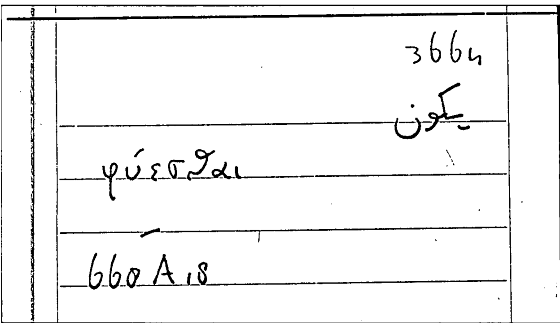 366h
يكون
φύεσθαι
660 A 18